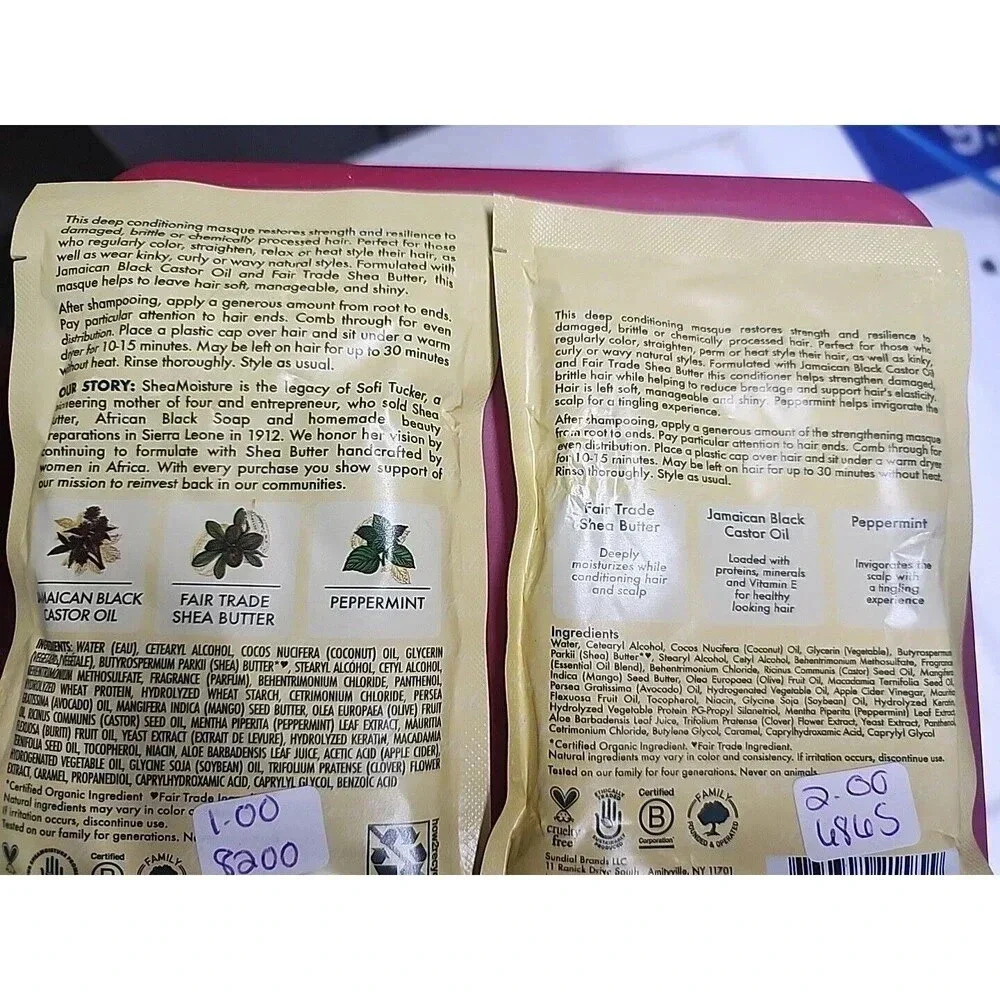 This deep conditioning masque restores strength and resilience to
damaged, brittle or chemically processed hair. Perfect for those
who regularly color, straighten, relax or heat style their hair, as
well as wear kinky, curly or wavy natural styles. Formulated with
Jamaican Black Castor Oil and Fair Trade Shea Butter, this
masque helps to leave hair soft, manageable, and shiny.
After shampooing, apply a generous amount from root to ends.
Pay particular attention to hair ends. Comb through for even
distribution. Place a plastic cap over hair and sit under a warm
dryer for 10-15 minutes. May be left on hair for up to 30 minutes
without heat. Rinse thoroughly. Style as usual.
OUR STORY: SheaMoisture is the legacy of Sofi Tucker, a
mother of four and entrepreneur, who sold Shea
African Black Soap and homemade beauty
reparations in Sierra Leone in 1912. We honor her vision by
continuing to formulate with Shea Butter handcrafted by
women in Africa. With every purchase you show support of
our mission to reinvest back in our communities.
MAICAN BLACK
CASTOR OIL
FAIR TRADE
SHEA BUTTER
PEPPERMINT
INGREDIENTS: WATER (EAU), CETEARYL ALCOHOL, COCOS NUCIFERA (COCONUT) OIL, GLYCERIN
(VEGETABLE/VÉGÉTALE), BUTYROSPERMUM PARKII (SHEA) BUTTER*♥, STEARYL ALCOHOL, CETYL ALCOHOL,
BEHENTRIMONIUM METHOSULFATE, FRAGRANCE (PARFUM), BEHENTRIMONIUM CHLORIDE, PANTHENOL,
HYDROLYZED WHEAT PROTEIN, HYDROLYZED WHEAT STARCH, CETRIMONIUM CHLORIDE, PERSEA
GRATISSIMA (AVOCADO) OIL, MANGIFERA INDICA (MANGO) SEED BUTTER, OLEA EUROPAEA (OLIVE) FRUIT
OIL, RICINUS COMMUNIS (CASTOR) SEED OIL, MENTHA PIPERITA (PEPPERMINT) LEAF EXTRACT, MAURITIA
FLEXUOSA (BURITI) FRUIT OIL, YEAST EXTRACT (EXTRAIT DE LEVURE), HYDROLYZED KERATIN, MACADAMIA
TERNIFOLIA SEED OIL, TOCOPHEROL, NIACIN, ALOE BARBADENSIS LEAF JUICE, ACETIC ACID (APPLE CIDER),
HYDROGENATED VEGETABLE OIL, GLYCINE SOJA (SOYBEAN) OIL, TRIFOLIUM PRATENSE (CLOVER) FLOWER
EXTRACT, CARAMEL, PROPANEDIOL, CAPRYLHYDROXAMIC ACID, CAPRYLYL GLYCOL, BENZOIC ACID
*Certified Organic Ingredient ♥Fair Trade
Natural ingredients may vary in color
If irritation occurs, discontinue use.
Tested on our family for generations.
Certified
FAMILY
1.00
8200
This deep conditioning masque restores strength and resilience to
damaged, brittle or chemically processed hair. Perfect for those who
regularly color, straighten, perm or heat style their hair, as well as kinky,
curly or wavy natural styles. Formulated with Jamaican Black Castor Oil
and Fair Trade Shea Butter this conditioner helps strengthen damaged,
brittle hair while helping to reduce breakage and support hair's elasticity.
Hair is left soft, manageable and shiny. Peppermint helps invigorate the
scalp for a tingling experience.
After shampooing, apply a generous amount of the strengthening masque
from root to ends. Pay particular attention to hair ends. Comb through for
even distribution. Place a plastic cap over hair and sit under a warm dryer
for 10-15 minutes. May be left on hair for up to 30 minutes without heat.
Rinse thoroughly. Style as usual.
Fair Trade
Shea Butter
Deeply
moisturizes while
conditioning hair
and scalp
Jamaican Black
Castor Oil
Loaded with
proteins, minerals
and Vitamin E
for healthy
looking hair
Peppermint
Invigorates the
scalp with
a tingling
experience
Ingredients
Water, Cetearyl Alcohol, Cocos Nucifera (Coconut) Oil, Glycerin (Vegetable), Butyrospermu
Parkii (Shea) Butter*♥, Stearyl Alcohol, Cetyl Alcohol, Behentrimonium Methosulfate, Fragranc
(Essential Oil Blend), Behentrimonium Chloride, Ricinus Communis (Castor) Seed Oil, Mangifer
Indica (Mango) Seed Butter, Olea Europaea (Olive) Fruit Oil, Macadamia Ternifolia Seed Oil,
Persea Gratissima (Avocado) Oil, Hydrogenated Vegetable Oil, Apple Cider Vinegar, Mauritia
Flexuosa Fruit Oil, Tocopherol, Niacin, Glycine Soja (Soybean) Oil, Hydrolyzed Keratin,
Hydrolyzed Vegetable Protein PG-Propyl Silanetriol, Mentha Piperita (Peppermint) Leaf Extract,
Aloe Barbadensis Leaf Juice, Trifolium Pratense (Clover) Flower Extract, Yeast Extract, Panthenol,
Cetrimonium Chloride, Butylene Glycol, Caramel, Caprylhydroxamic Acid, Caprylyl Glycol
*Certified Organic Ingredient. ♥Fair Trade Ingredient.
Natural ingredients may vary in color and consistency. If irritation occurs, discontinue use.
Tested on our family for four generations. Never on animals.
cruelty
free
ETHICALLY
TRADED
Certified
B
Corporation
FAMILY
FOUNDED & OPERATED
Sundial Brands LLC
11 Ranick Drive South, Amityville, NY 11701
2.00
6865